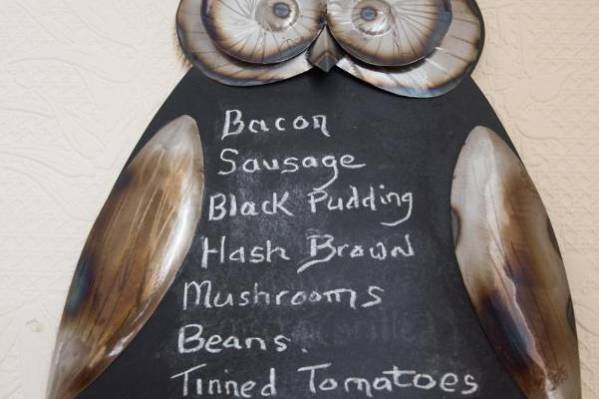 Bacon
Sausage
Black Pudding
Hash Brown
Mushrooms
Beans.
Tinned Tomatoes